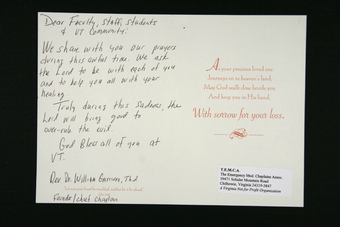 Dear Faculty, staff, students
& VT Community:
We share with you our prayers
during this awful time. We ask
the Lord to be with each of you
and to help you all with your
healing.
Truly during this sadness, the
Lord will bring good to
over-rule the evil.
God Bless all of you at
VT.
Rev. Dr. William
Founder/chief chaplain
As your precious loved one
Journeys on to heaven's land,
May God walk close beside you
And keep you in His hand.
With sorrow for your loss.
T.E.M.C.A.
The Emergency Med. Chaplains Assoc.
Mountain Road
Chilhowie, Virginia 24319-5847
A Virginia Not for Profit Organization